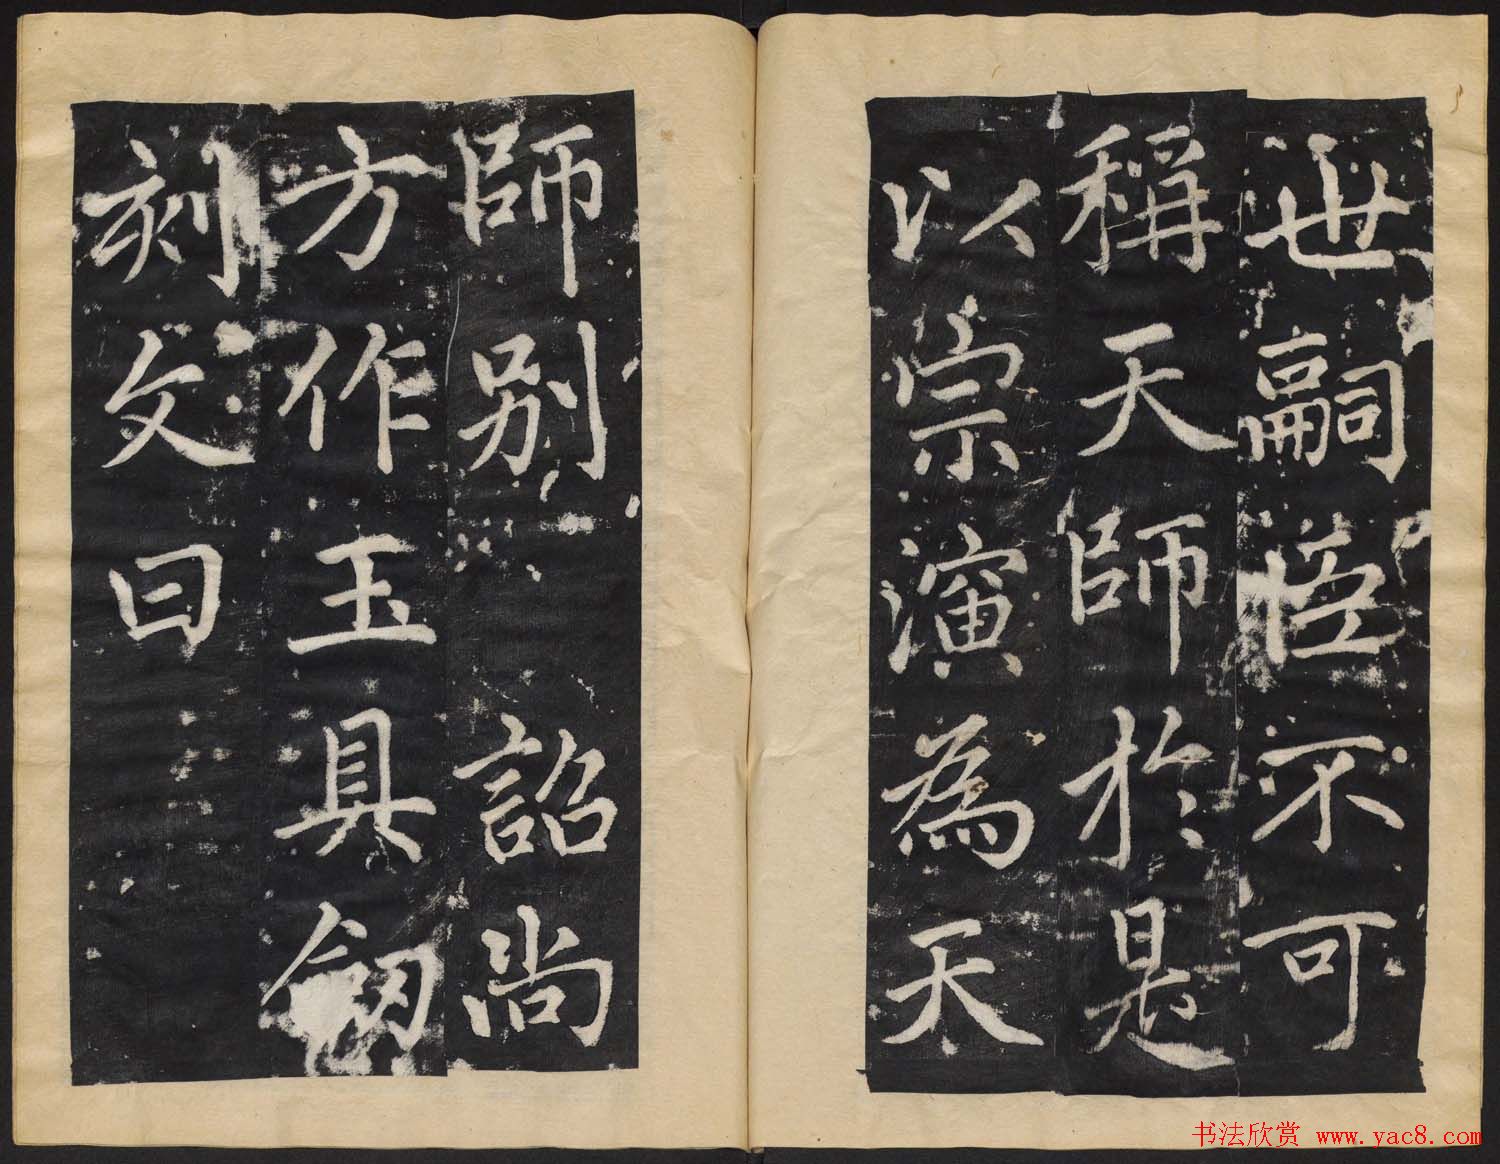 世嗣恠不可
稱天師於是
以崇演為天
師别 詔尚
方作玉具劒
刻文曰
书法欣赏 www.yac8.com